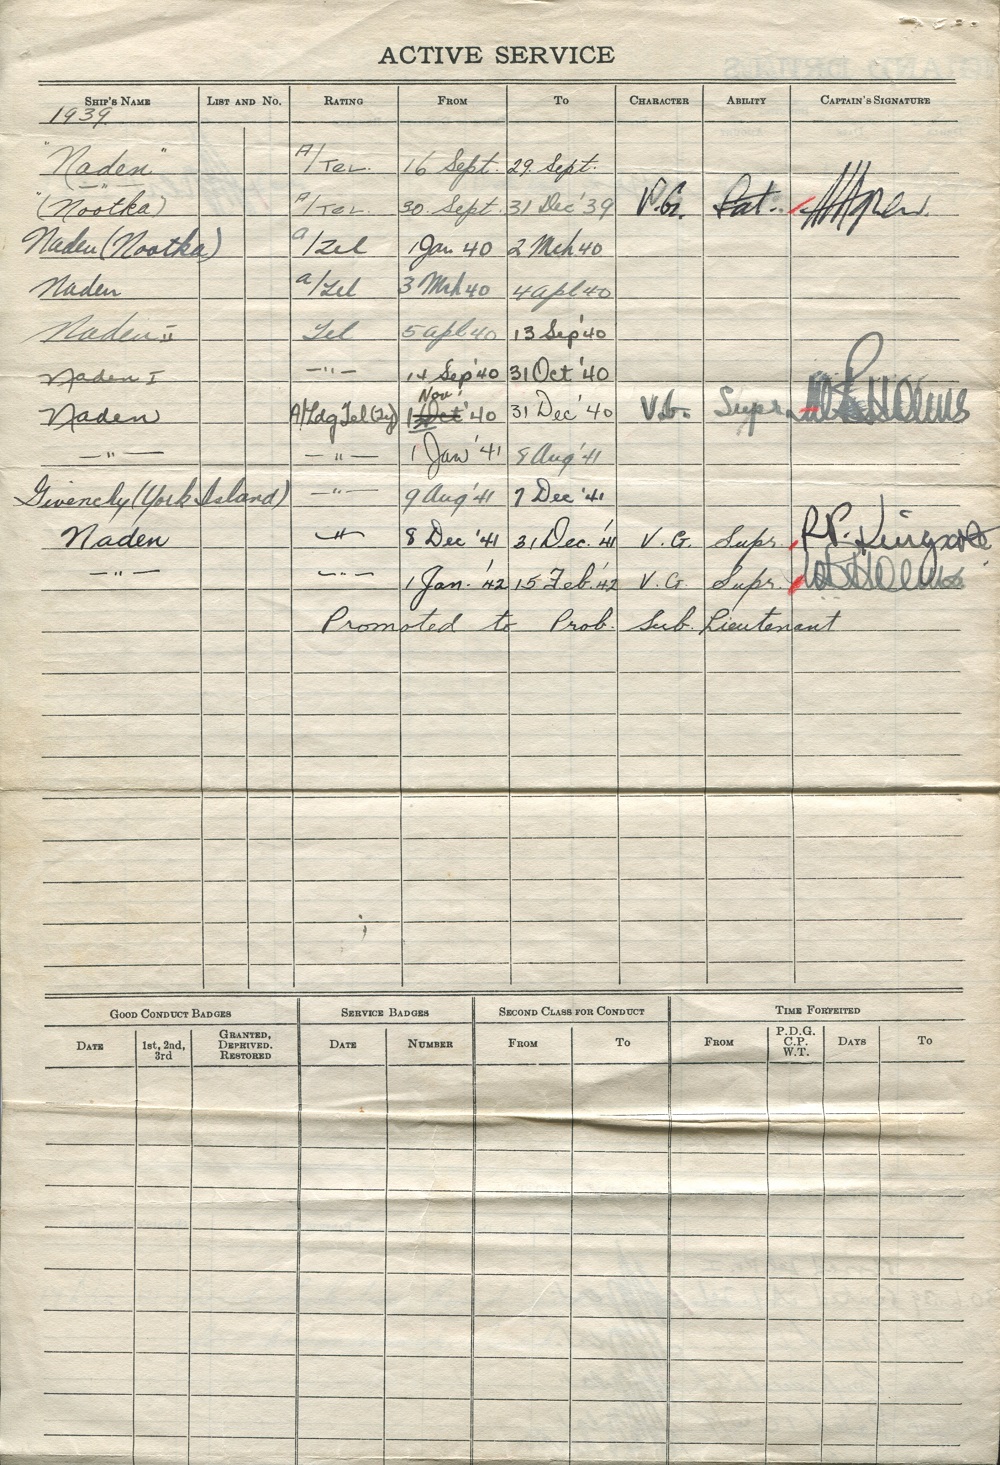 ACTIVE SERVICE
SHIP'S NAME LIST AND NO. RATING FROM TO CHARACTER ABILITY CAPTAIN'S SIGNATURE
1939
"Naden" A/Tel. 16 Sept. 29 Sept.
"(Nootka) A/Tel 30 Sept. 31 Dec '39 V.G. Sat.
Naden (Nootka) a/Tel 1 Jan 40 2 Mch 40
Naden a/Tel 3 Mch 40 4 apl 40
Naden II Tel 5 apl 40 13 Sep '40
Naden I —"— 14 Sep '40 31 Oct '40
Nov.
Naden A/Ldg Tel (Ty) 1 Oct '40 31 Dec '40 V.G. Supr.
—"— —"— 1 Jan '41 8 Aug '41
Givenchy (York Island) —"— 9 Aug '41 7 Dec '41
Naden —"— 8 Dec '41 31 Dec. '41 V.G. Supr.
—"— —"— 1 Jan. '42 15 Feb. '42 V.G. Supr.
Promoted to Prob. Sub. Lieutenant
GOOD CONDUCT BADGES SERVICE BADGES SECOND CLASS FOR CONDUCT TIME FORFEITED
DATE 1st, 2nd, 3rd GRANTED, DEPRIVED. RESTORED DATE NUMBER FROM TO FROM P.D.G. C.P. W.T. DAYS TO